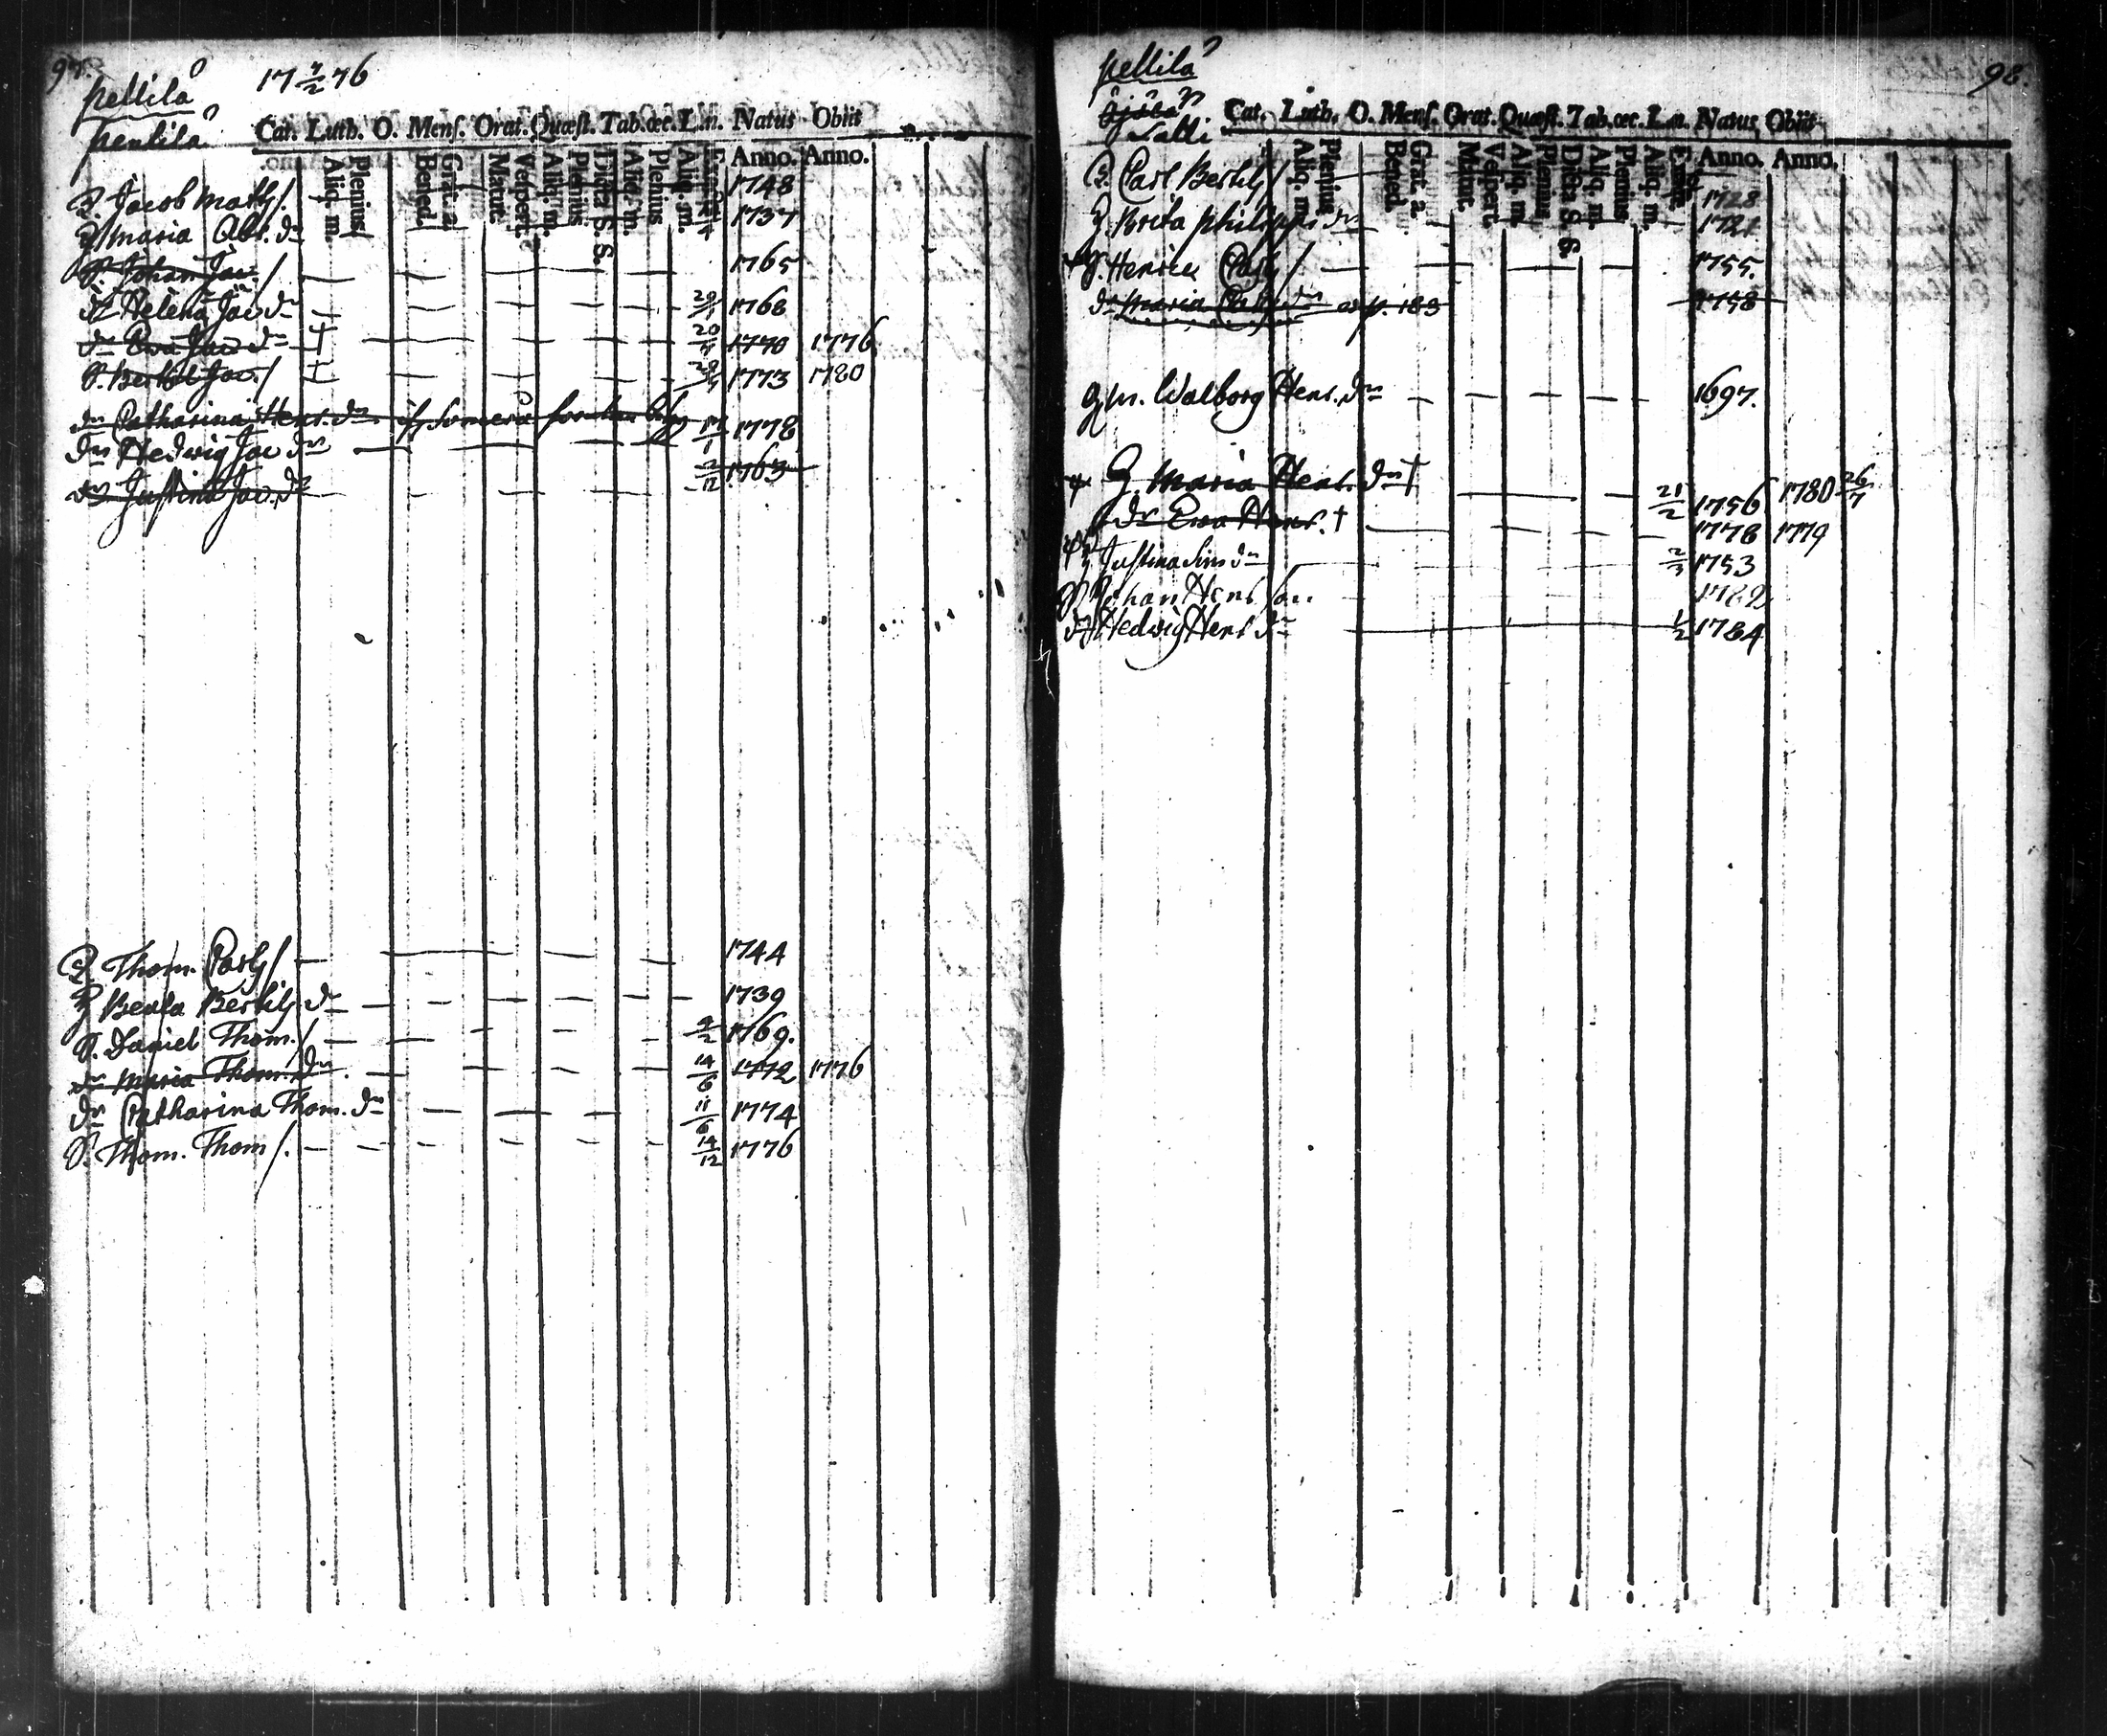 97.
pellilä 17 7/2 76
penlilä
Cat. Luth. O. Mens. Orat. Quæst. Tab.œc. L.n. Natus Obiit
Aliq. m. Plenius Bened. Grat. a. Matut. Vespert. Aliq. m. Plenius. Dicta S. S. Aliq. m. Plenius Aliq. m. Anno. Anno.
Jacob Math/. 1748
H maria Abr. dr 1737
S. Johan Jac./ 1765
dr Helena Jac dr 1768
dr Eva Jac dr † 20 1770 1776
S. Bertil Jac./ † 1773 1780
dr Catharina Henr. dr
dr Hedwig Jac dr 17/1 1778
dr Justina Jac. dr 2/12 1763
Thom. Carls/ 1744
H Beata Bertils dr 1739
S. Daniel Thom./ 9/2 1769.
dr Maria Thom. dr. 14/6 1772 1776
dr Catharina Thom. dr 11/6 1774
S. Thom. Thom/. 14/12 1776
pellilä 98
Salli
Cat. Luth. O. Mens. Orat. Quæst. Tab.œc. L.n. Natus Obiit
Aliq. m. Plenius Bened. Grat. a. Matut. Vespert. Aliq. m. Plenius Dicta S. S. Aliq. m. Plenius Aliq. m. Anno. Anno.
Carl Bertils/ 1728
H. Brita philippi dr 1721
S. Henric Carls/ 1755.
dr Maria Carls dr p. 183 1758
gm. Walborg Henr. dr 1697.
H. Maria Henr. dr † 21/2 1756 1780 26/7
dr Eva Henr. † 1778 1779
H Justina Sim dr 2/3 1753
S Johan Henr son 1782
dr Hedwig Henr dr 1/2 1784